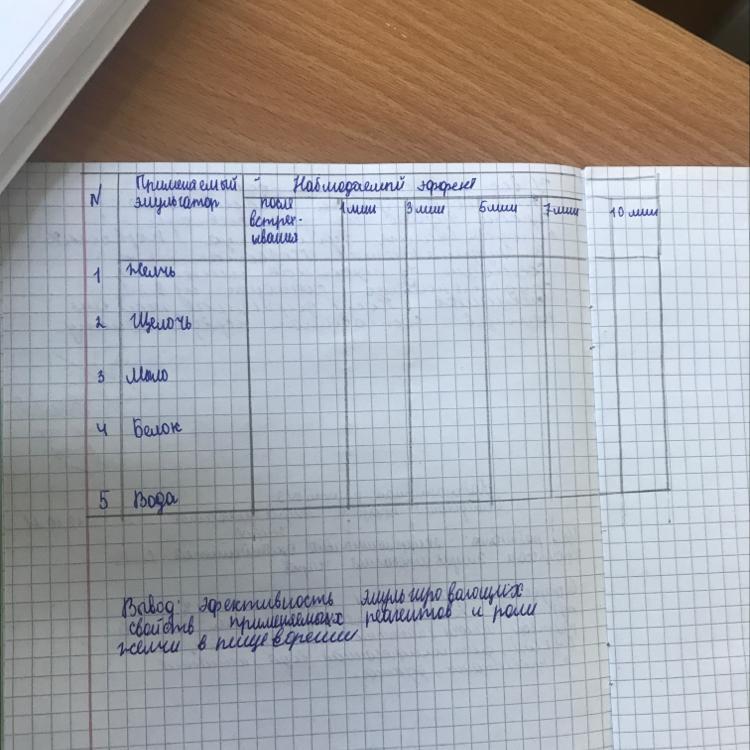 N Применяемый эмульгатор Наблюдаемый эффект
после встрех-ивания 1 мин 3 мин 5 мин 7 мин 10 мин
1 Желчь
2 Щелочь
3 Мыло
4 Белок
5 Вода
Вывод: эфективность эмульгировающих
свойств применяемых реагентов и роли
желчи в пищеварении